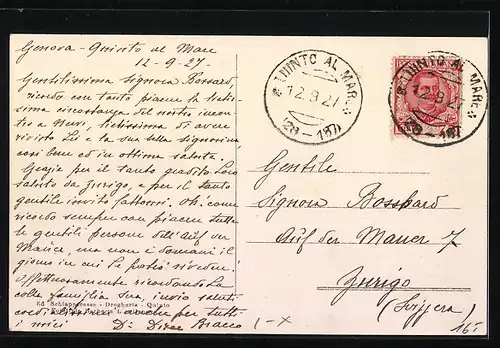 Genova - Quinto al Mare
12-9-27-
Gentilissima Signora Bossard,
ricordo con tanto piacere la lieta
circostanza del nostro incon-
tro a Nervi, lietissima di avere
rivisto Lei e la sua bella signorina
così bene ed in ottima salute.
Grazie per il tanto gradito Loro
saluto da Zurigo, e per il tanto
gentile invito fattomi. Oh! come
ricordo sempre con piacere tutte
le gentili persone dell'Auf der
Mauer, ma non è domani il
giorno in cui Le potrò rivedere!
Affettuosamente ricordando La
colla famiglia Sua, invio saluti
cordialissimi anche per tutti
i miei
Ed. Schiappacasse - Drogheria - Quinto
QUINTO AL MARE
12.9.27
QUINTO AL MARE
12.9.27
Gentile
Signora Bosshard
Auf der Mauer 7
Zurigo
(Svizzera)
1-X
16.-